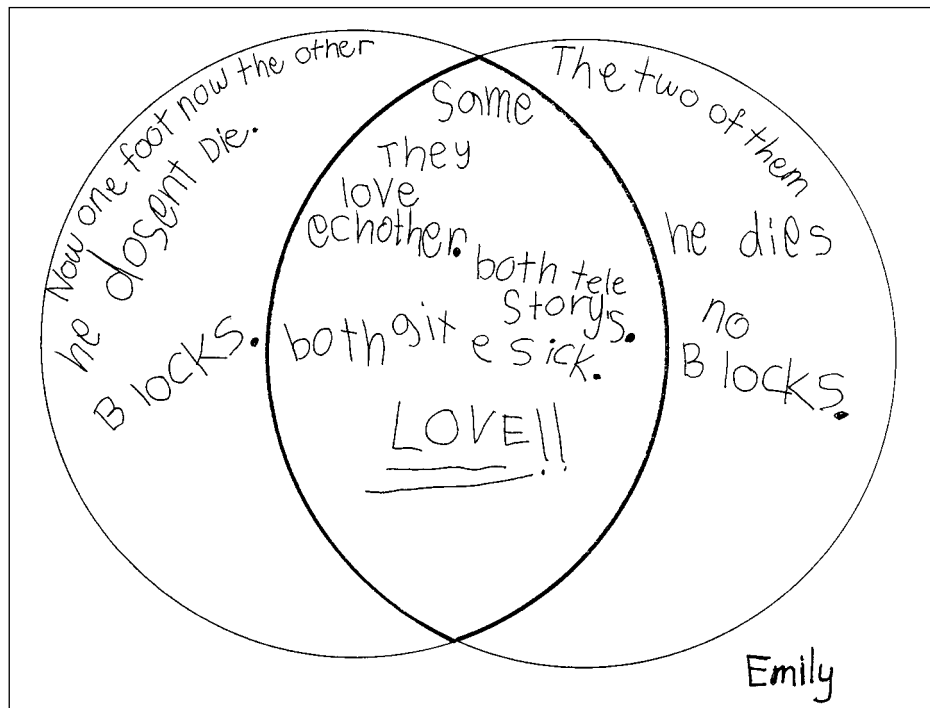 Now one foot now the other
he dosent Die.
Blocks.
Same
They
love
echother.
both tele
Storys.
both git e sick.
LOVE!!
The two of them
he dies
no
Blocks.
Emily